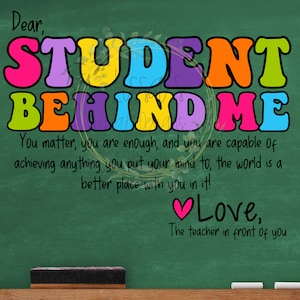 Dear,
STUDENT
BEHIND ME
You matter, you are enough, and you are capable of
achieving anything you put your mind to, the world is a
better place with you in it!
Love,
The teacher in front of you